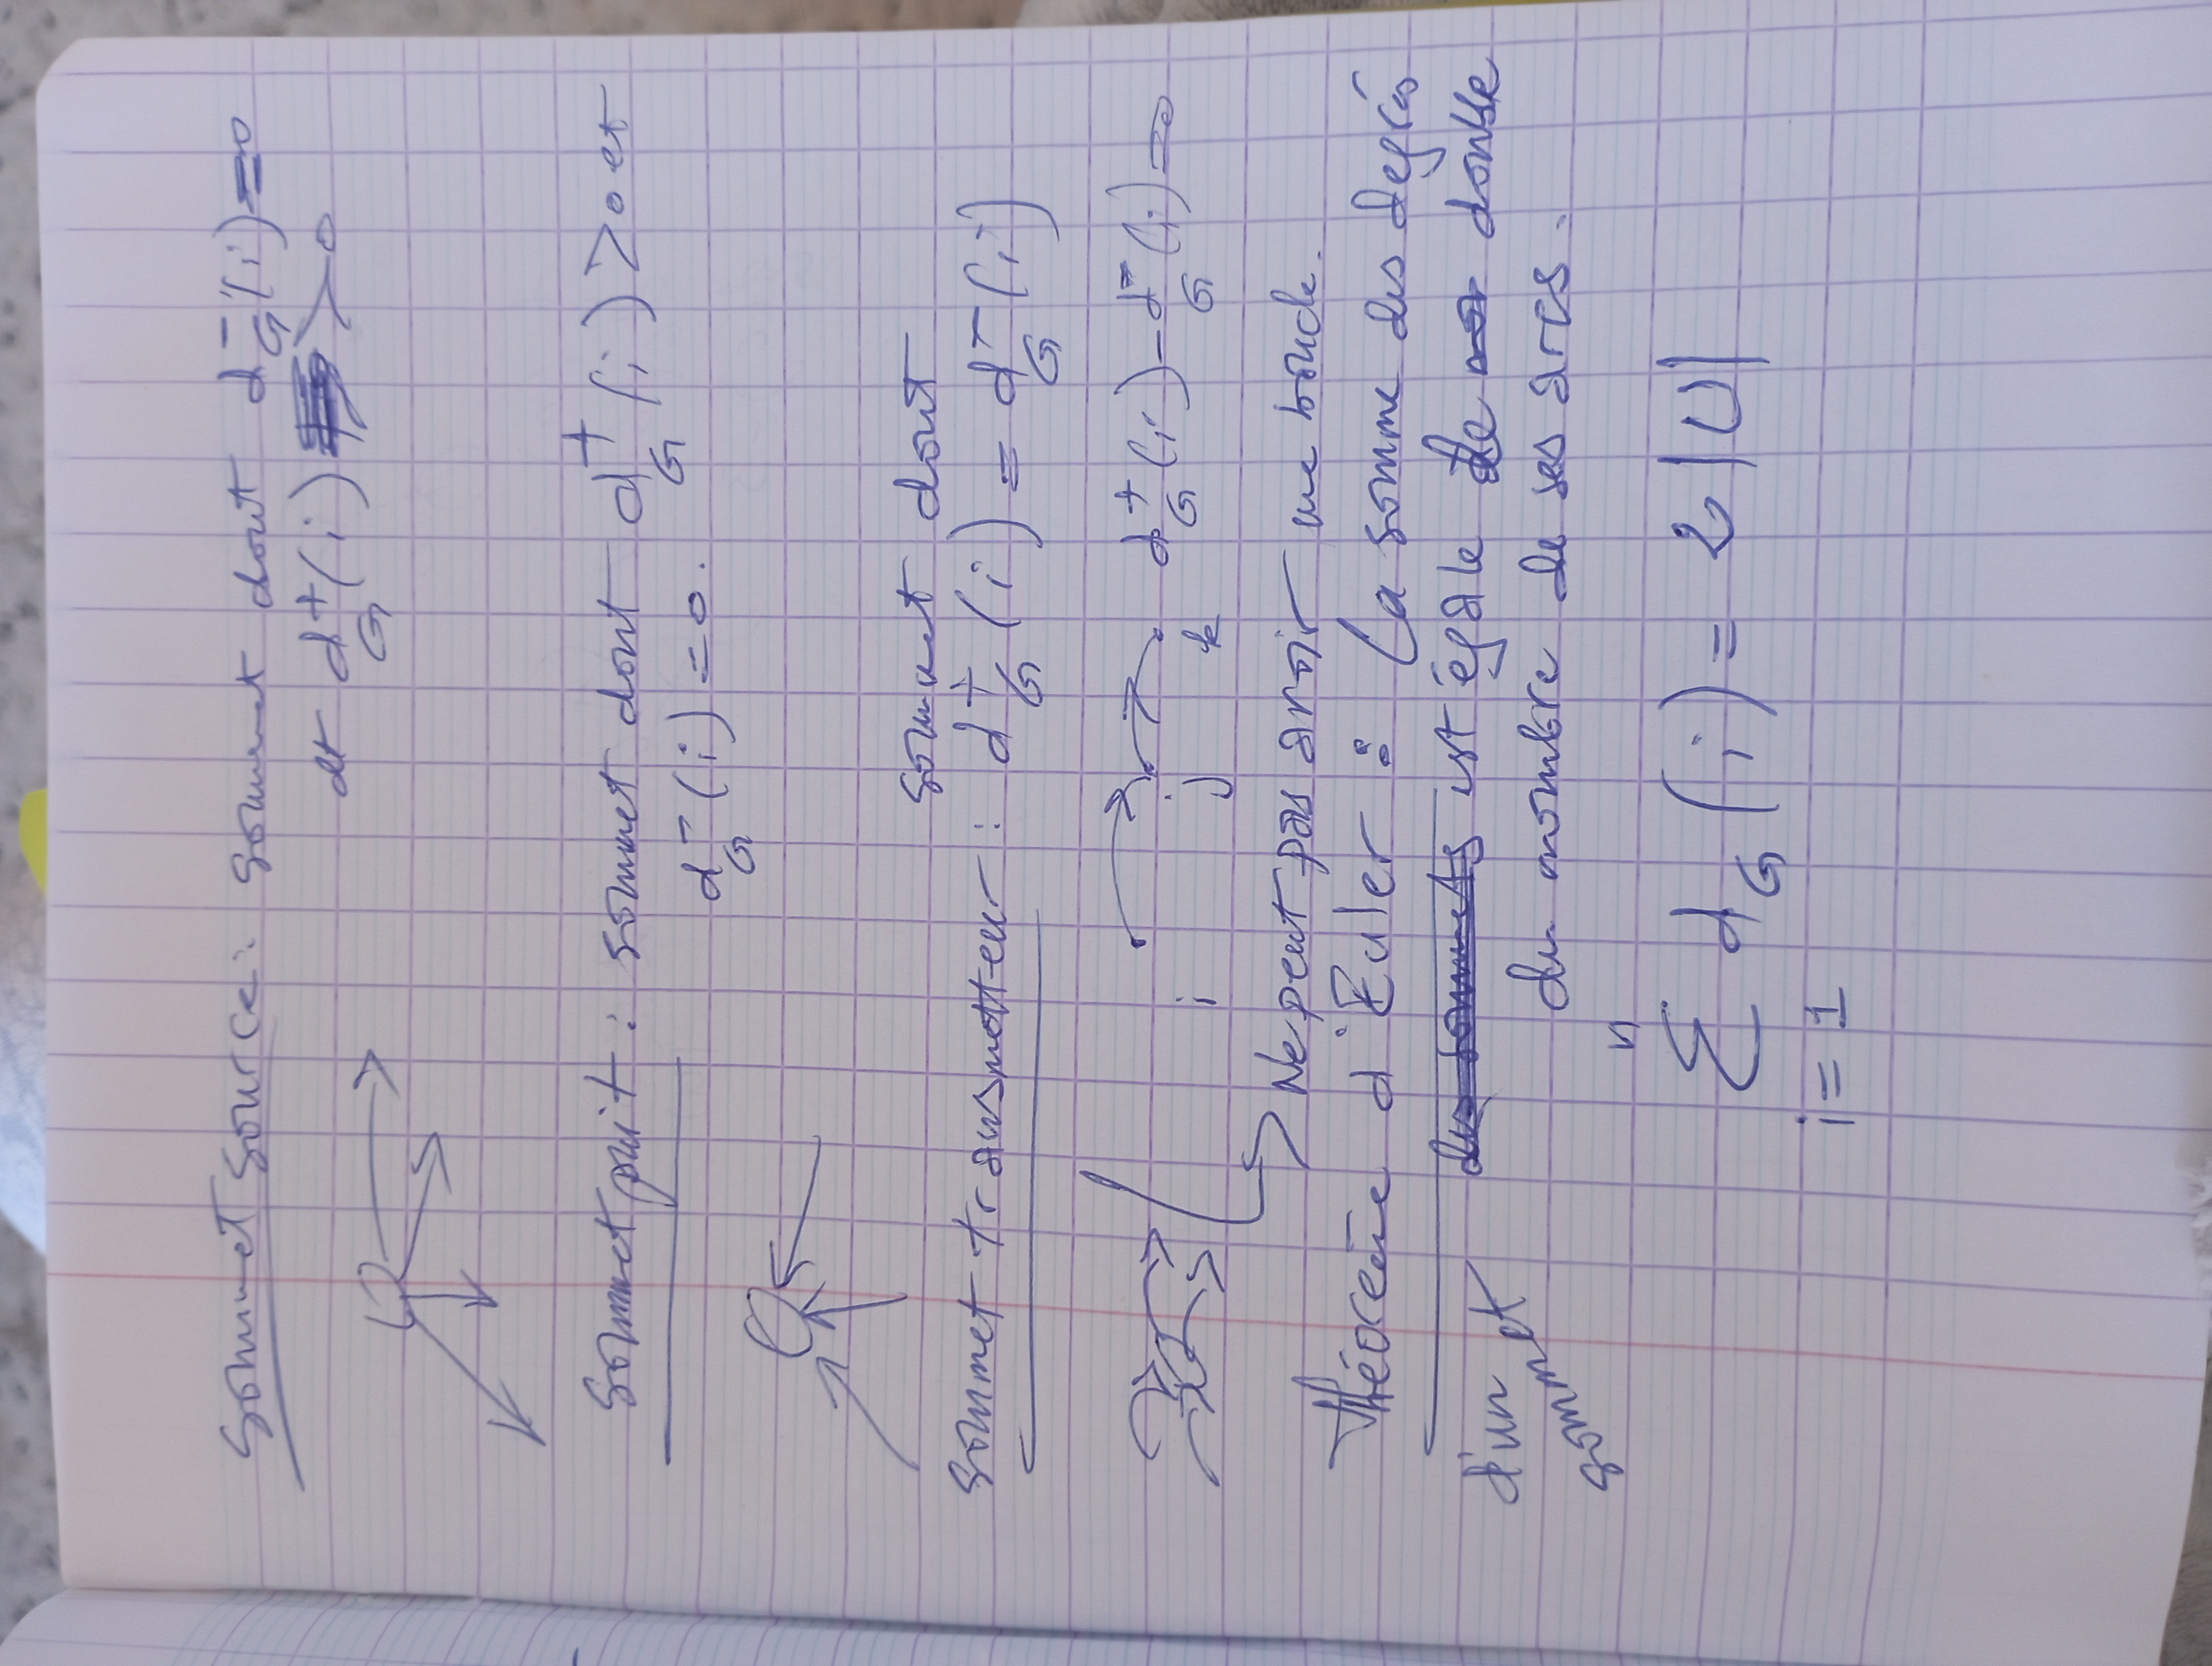 Sommet source : sommet dont d⁻_G(i) = 0
et d⁺_G(i) > 0
Sommet puit : sommet dont d⁺_G(i) > 0 et
d⁻_G(i) = 0.
sommet dont
Sommet transmetteur : d⁺_G(i) = d⁻_G(i)
i j k d⁺_G(i) - d⁻_G(i) = 0
Ne peut pas avoir une boucle.
Théorème d'Euler : La somme des degrés
d'un sommet des sommets est égale le double
du nombre de ses arcs.
n
Σ d_G(i) = 2 |U|
i = 1